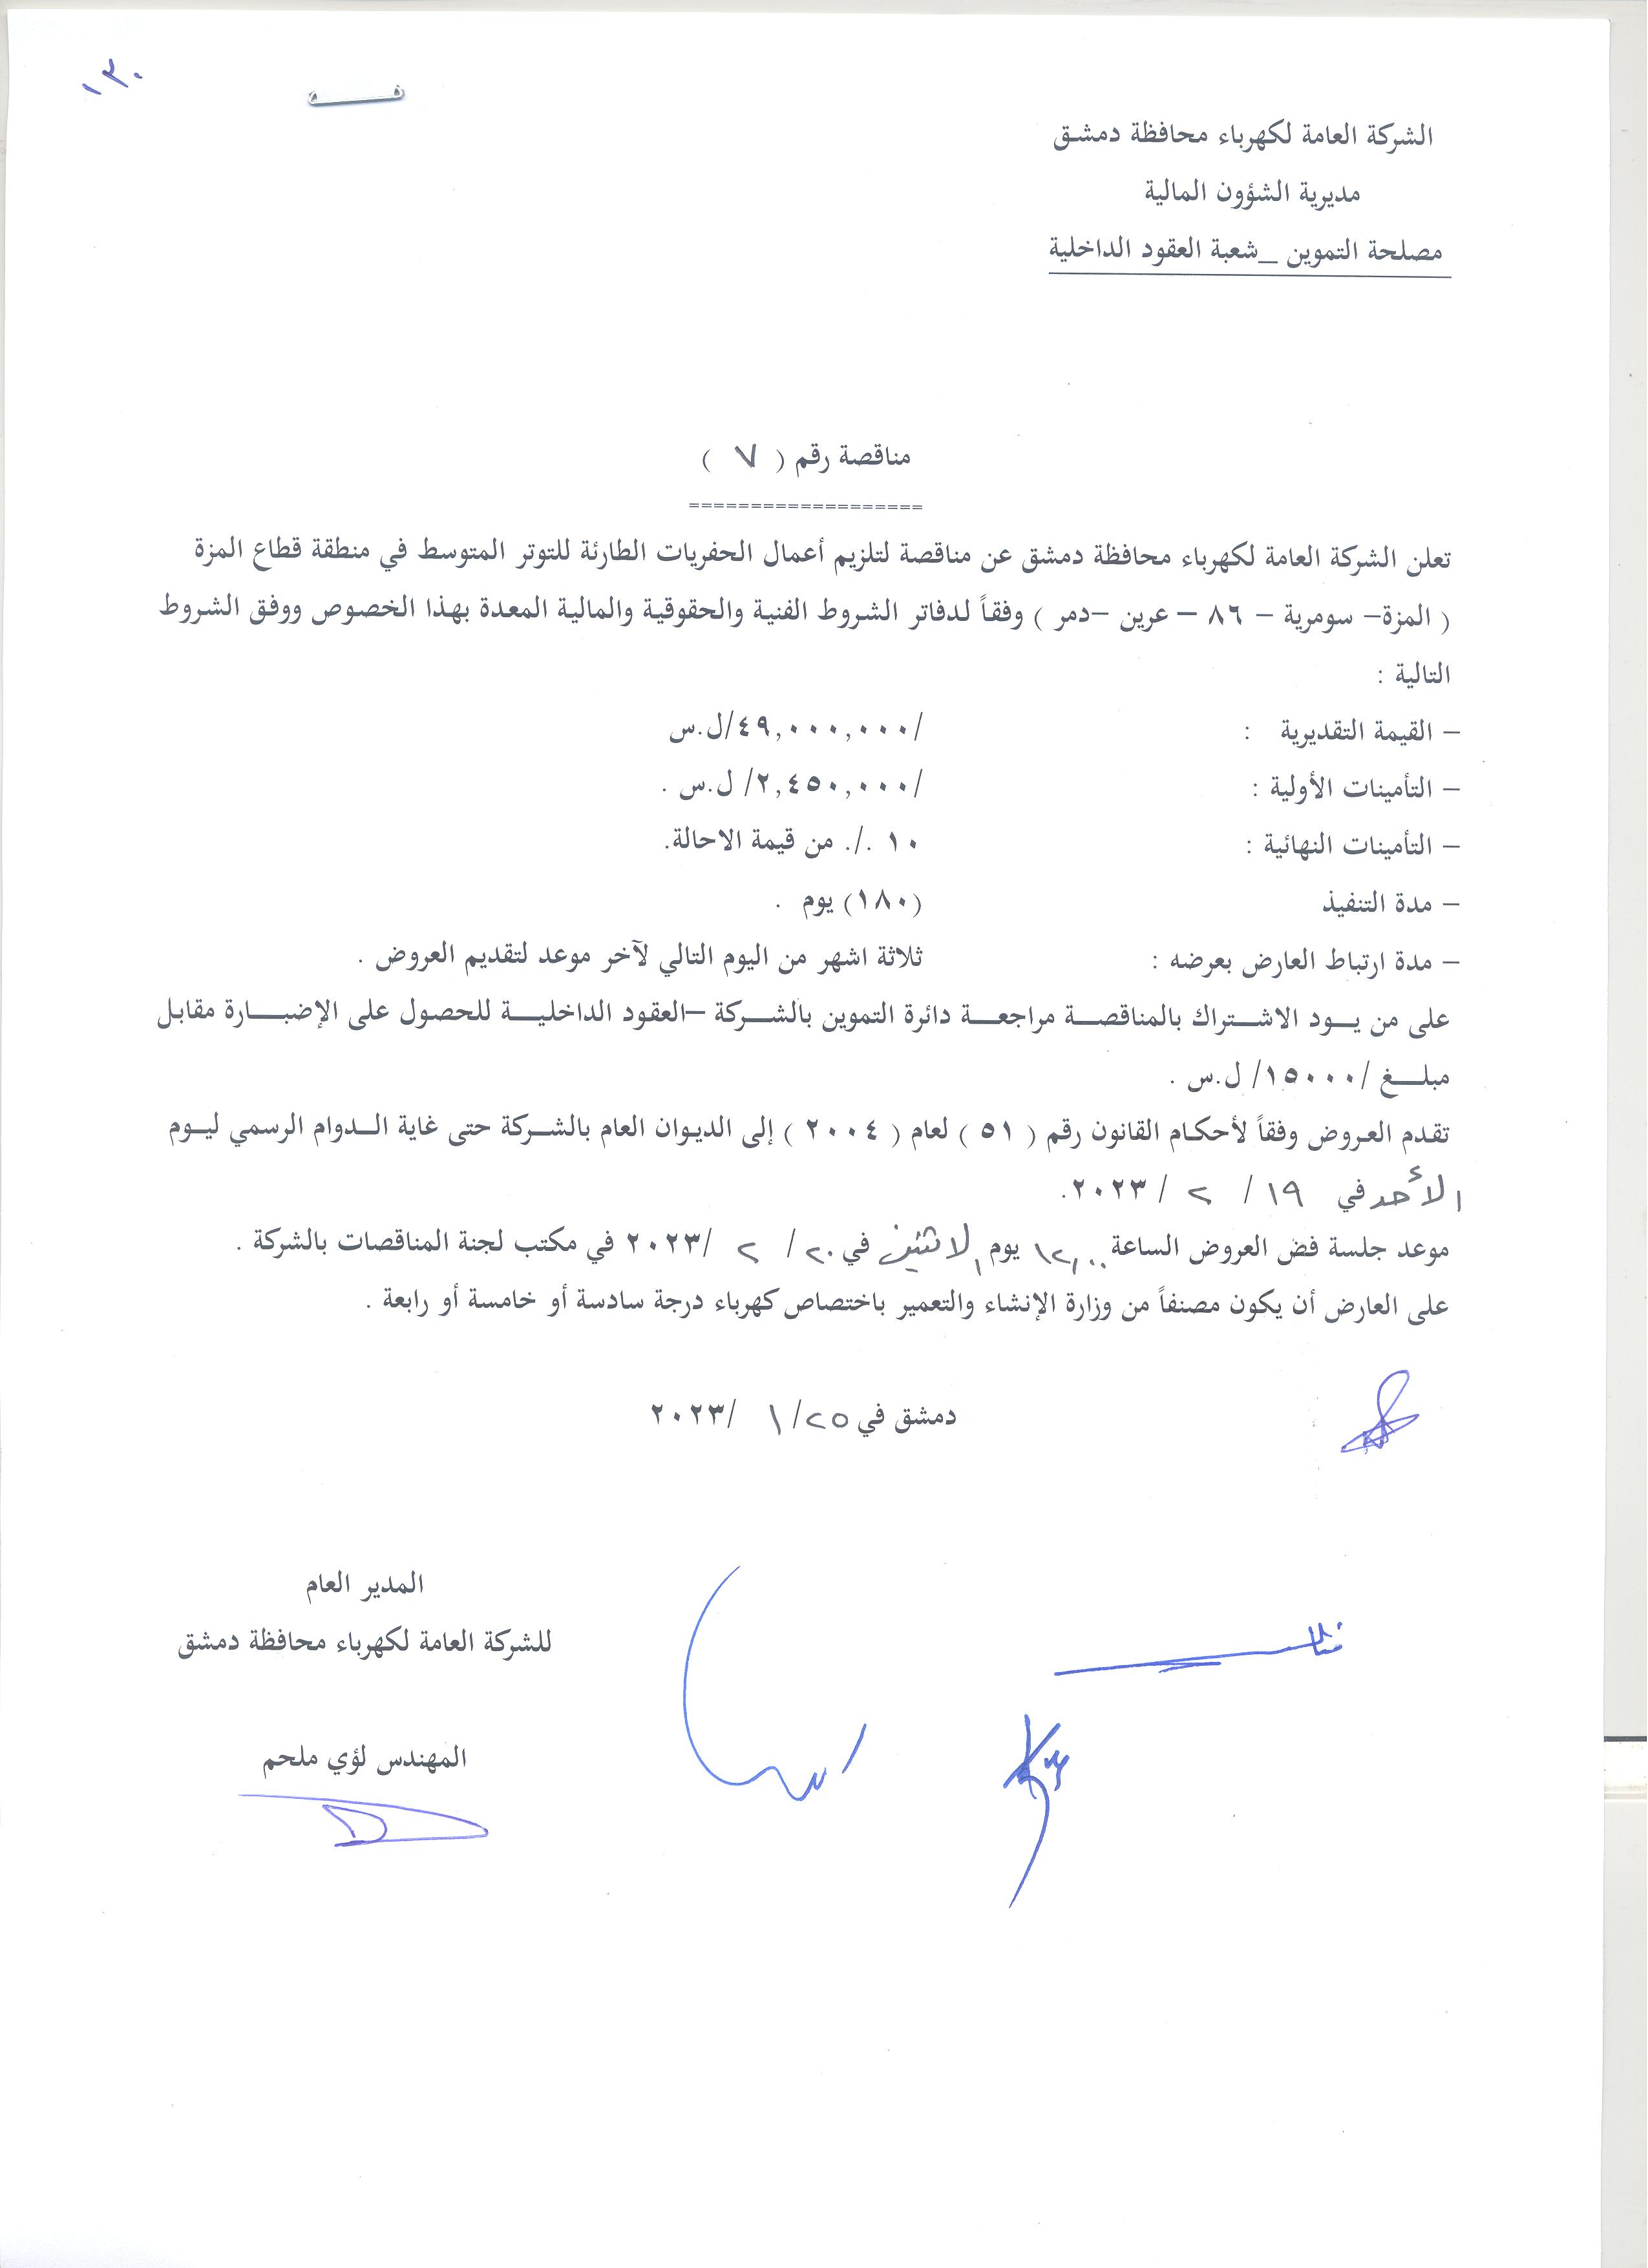 ١٣٠
الشركة العامة لكهرباء محافظة دمشق
مديرية الشؤون المالية
مصلحة التموين _شعبة العقود الداخلية
مناقصة رقم ( ٧ )
===================
تعلن الشركة العامة لكهرباء محافظة دمشق عن مناقصة لتلزيم أعمال الحفريات الطارئة للتوتر المتوسط في منطقة قطاع المزة
( المزة– سومرية – ٨٦ – عرين –دمر ) وفقاً لدفاتر الشروط الفنية والحقوقية والمالية المعدة بهذا الخصوص ووفق الشروط
التالية :
– القيمة التقديرية : /٤٩,٠٠٠,٠٠٠/ل.س
– التأمينات الأولية : /٢,٤٥٠,٠٠٠/ ل.س .
– التأمينات النهائية : ١٠ ./. من قيمة الاحالة.
– مدة التنفيذ (١٨٠) يوم .
– مدة ارتباط العارض بعرضه : ثلاثة اشهر من اليوم التالي لآخر موعد لتقديم العروض .
على من يـــود الاشـــتراك بالمناقصـــة مراجعـــة دائرة التموين بالشـــركة –العقود الداخليـــة للحصول على الإضبـــارة مقابل
مبلـــغ /١٥٠٠٠/ ل.س .
تقدم العروض وفقاً لأحكام القانون رقم ( ٥١ ) لعام ( ٢٠٠٤ ) إلى الديوان العام بالشـــركة حتى غاية الـــدوام الرسمي ليـــوم
الأحد في ١٩ / ٢ / ٢٠٢٣.
موعد جلسة فض العروض الساعة ١٢,٠٠ يوم الاثنين في ٢٠/ ٢ /٢٠٢٣ في مكتب لجنة المناقصات بالشركة .
على العارض أن يكون مصنفاً من وزارة الإنشاء والتعمير باختصاص كهرباء درجة سادسة أو خامسة أو رابعة .
دمشق في ٢٥/ ١ /٢٠٢٣
المدير العام
للشركة العامة لكهرباء محافظة دمشق
المهندس لؤي ملحم